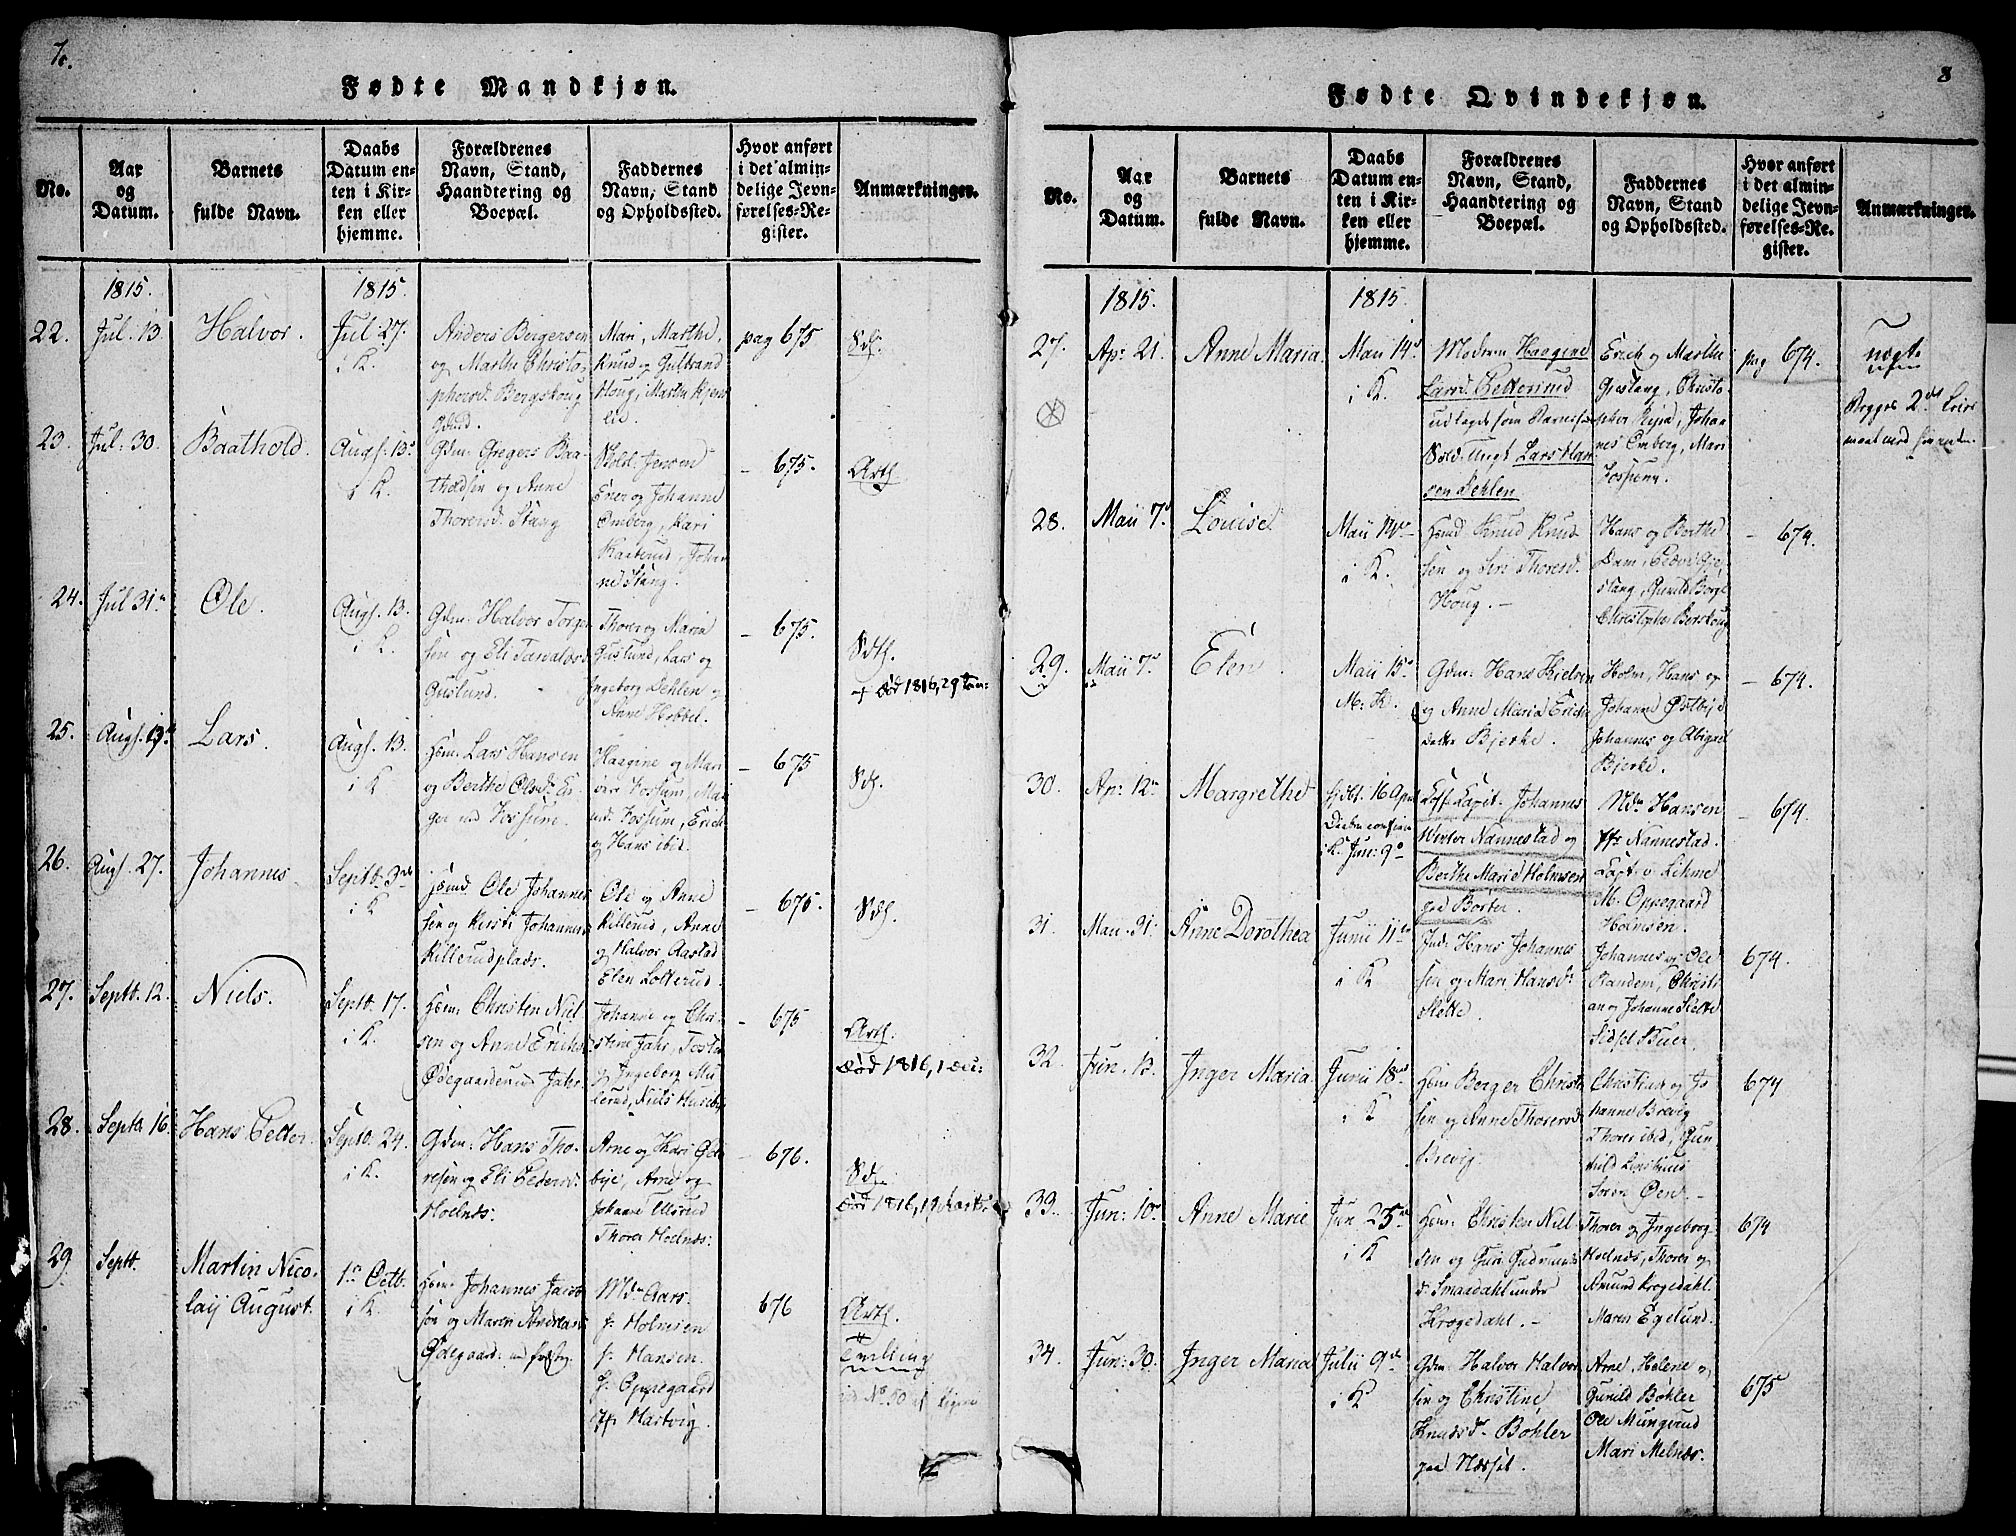 7.
Fødte Mandkjøn.
No.
Aar
og
Datum.
Barnets
fulde Navn.
Daabs
Datum en-
ten i Kir-
ken eller
hjemme.
Forældrenes
Navn, Stand,
Haandtering og
Boepæl.
Faddernes
Navn, Stand
og Opholdssted.
Hvor anført
i det almin-
delige Jevn-
førelses-Re-
gister.
Anmærkninger.
1815.
1815.
22.
Jul. 13
Halvor.
Jul: 27.
i K.
Anders Bergersen
og Marthe Christo-
phersd. Bergskoug
Mari, Marthe,
Knud og Gulbrand
Houg, Marthe
pag 675
23.
Jul: 30.
Baathold.
Augs. 13
i K.
Gdm: Gregers Baa-
tholdsen og Anne
Thoresd. Stang
Jensen
Omberg, Kari
Kaaterud, Johan
ne Stang.
- 675.
24.
Jul 31
Ole.
Augs. 13.
i K.
Gdm: Halvor Torger
sen og Eli Tarvaldsd
Guslund.
Thorer og Maria
Guslund, Lars og
Ingeborg Dehlen og
Anne Hobbel.
- 675.
+ død 1816, 29
25.
Augs. 13
Lars.
Augs. 13.
i K
Lars Hansen
og Berthe Olsd.
Fossum.
Haagine og Mari
Fossum, Mari
Fossum, Erich
og Hans ibid.
- 675
26.
Augs. 27.
Johannes
Septt: 3
i K
Ole Johannes
sen og Kirsti Johannesd
Killerudplads.
Ole og Anne
Killerud, Anne
og Halvor Aastad
Elen Lotterud.
- 675.
27.
Septt. 12.
Niels.
Septt 17.
i K.
Christen Niel
sen og Anne Erichsd
Ødegaarden Jahr.
Johanne og Chri-
stine Jahr,
og Ingeborg Mu
lerud, Niels Huseby
- 675
død 1816,
28.
Septr 16.
Hans Petter.
Septt. 24.
i K.
Gdm: Hans Tho-
resen og Eli Pedersd.
Holnæs.
Arne og Kari
Arne og
Johanne Ullerud
Thorer Holnæs.
- 676.
død 1816, 19 Marts
29.
Septt.
Martin Nico-
laij August.
1 Octb.
i K.
Johannes Jacob
sen og Maren Andreas
Ødegaard
Aars.
Holmsen
Hansen
Oppegaard
Hartvig.
676
8
Fødte Qvindekjøn.
No.
Aar
og
Datum.
Barnets
fulde Navn.
Daabs
Datum en-
ten i Kir-
ken eller
hjemme.
Forældrenes
Navn, Stand,
Haandtering og
Boepæl.
Faddernes
Navn, Stand
og Opholdssted.
Hvor anført
i det almin-
delige Jevn-
førelses-Re-
gister.
Anmærkninger.
1815.
1815.
27.
Ap: 21.
Anne Maria
Maii 14
i K.
Modren Haagine
Larsd.
udlagt som Barnefa
Ungk. Lars Han
sen Dehlen
Erich og Marthe
Gjestang, Christo
pher Johan
nes Omberg, Mari
Fossum.
pag 674.
uægte
Begges 2
28.
Maii 7
Louise
Maii 14
i K.
Knud Knud
sen og Siri Thoresd.
Houg. -
Hans og Berthe
Dam,
stang, Gunild Borge
Christophe
- 674.
29.
Maii 7
Elen
Maii 15
M: K.
Gdm: Hans Kielsen
og Anne Maria Erichs
datter Bjerke.
Holm, Hans og
Johanne Østbye
Johannes og Abigael
Bjerke.
- 674.
30.
Ap: 12
Margrethe
16 Apr
i K. Jun: 9
Capit. Johannes
Winter Nannestad og
Berthe Marie Holmsen
Borter.
Hansen
Nannestad.
Capt. v. Lehme
M. Oppegaard
Holmsen.
- 674.
31.
Maii. 31.
Anne Dorothea
Junii 11
i K
Ind: Hans Johannes
sen og Mari Hansd.
Slette.
Johannes og Ole
Randem, Christi
an og Johanne Slette
Sidsel Buer.
674.
32.
Jun. 13.
Inger Maria
Junii 18
i K
Berger Christ
sen og Anne Thoresd
Brevig.
Christine og Jo
hanne Brevig
Thorer ibid, Gun
hild
Soren
674
33.
Jun: 10
Anne Marie
Jun 25
i K
Christen Niel
sen og Guri Gudmunds
d. Smaadahl under
Krogedahl. -
Thorer og Ingeborg
Holnæs, Thorer og
Amund Krogedahl.
Maren Egelund.
674
34.
Jun: 30.
Inger Maria
Julii 9
i K
Gdm: Halvor Halvor
sen og Christine
Knudsd. Bøhler
paa Næsset.
Arne, Helene og
Gunild Bøhler
Ole Mungerud
Mari Melnæs.
675